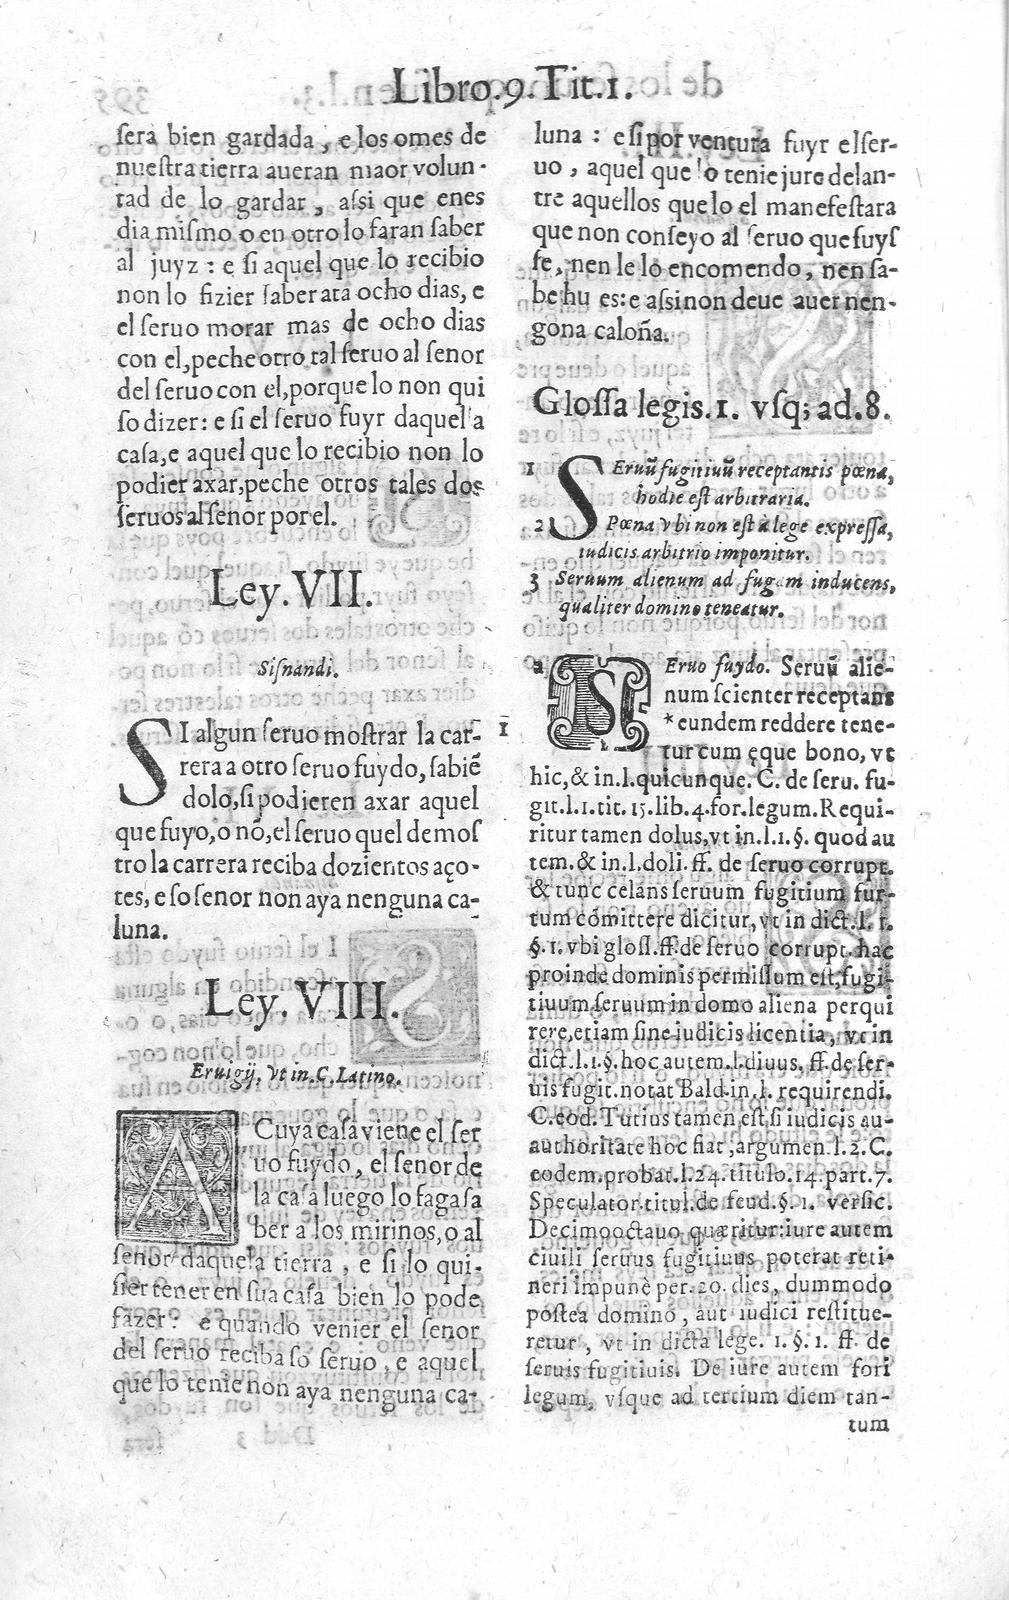 Libro.9.Tit.1.
ſera bien gardada, e los omes de
nueſtra tierra aueran maor volun-
tad de lo gardar, aſsi que enes
dia miſmo o en otro lo faran ſaber
al juyz: e ſi aquel que lo recibio
non lo fizier ſaber ata ocho dias, e
el ſeruo morar mas de ocho dias
con el, peche otro tal ſeruo al ſenor
del ſeruo con el, porque lo non qui
ſo dizer: e ſi el ſeruo fuyr daquel a
caſa, e aquel que lo recibio non lo
podier axar, peche otros tales dos
ſeruos al ſenor por el.
Ley. VII.
Siſnandi.
SI algun ſeruo moſtrar la car-
rera a otro ſeruo fuydo, ſabiẽ
dolo, ſi podieren axar aquel
que fuyo, o nõ, el ſeruo quel demoſ
tro la carrera reciba dozientos aço-
tes, e ſo ſenor non aya nenguna ca-
luna.
Ley. VIII.
Eruigij, vt in. C. Latino.
A Cuya caſa viene el ſer
uo fuydo, el ſenor de
la caſa luego lo faga ſa
ber a los mirinos, o al
ſenor daquela tierra, e ſi lo qui-
ſier tener en ſua caſa bien lo pode
fazer: e quando venier el ſenor
del ſeruo reciba ſo ſeruo, e aquel
que lo tenie non aya nenguna ca-
luna: e ſi por ventura fuyr el ſer-
uo, aquel que lo tenie jure delan-
tre aquellos que lo el manefeſtara
que non conſeyo al ſeruo que fuyſ
ſe, nen le lo encomendo, nen ſa-
be hu es: e aſsi non deue auer nen-
gona caloña.
Gloſſa legis. 1. vſq; ad. 8.
1 SEruũ fugitiuũ receptantis pœna,
hodie eſt arbitraria.
2 Pœna vbi non eſt à lege expreſſa,
iudicis arbitrio imponitur.
3 Seruum alienum ad fugam inducens,
qualiter domino teneatur.
a SEruo fuydo. Seruũ alie-
num ſcienter receptans
1 *eundem reddere tene-
tur cum ęque bono, vt
hic, & in. l. quicunque. C. de ſeru. fu-
git. l. 1. tit. 15. lib. 4. for. legum. Requi-
ritur tamen dolus, vt in. l. 1. §. quod au
tem. & in. l. doli. ff. de ſeruo corrupt.
& tunc celans ſeruum fugitium fur-
tum cõmittere dicitur, vt in dict. l. 1.
§. 1. vbi gloſſ. ff. de ſeruo corrupt. hac
proinde dominis permiſſum eſt, fugi-
tiuum ſeruum in domo aliena perqui
rere, etiam ſine iudicis licentia, vt in
dict. l. 1. §. hoc autem. l. diuus, ff. de ſer-
uis fugit. notat Bald. in. l. requirendi.
C. eod. Tutius tamen eſt, ſi iudicis au-
authoritate hoc fiat, argumen. l. 2. C.
eodem. probat. l. 24. titulo. 14. part. 7.
Speculator. titul. de feud. §. 1. verſic.
Decimooctauo quæritur: iure autem
ciuili ſeruus fugitiuus poterat reti-
neri impunè per. 20. dies, dummodo
poſtea domino, aut iudici reſtitue-
retur, vt in dicta lege. 1. §. 1. ff. de
ſeruis fugitiuis. De iure autem fori
legum, vſque ad tertium diem tan-
tum